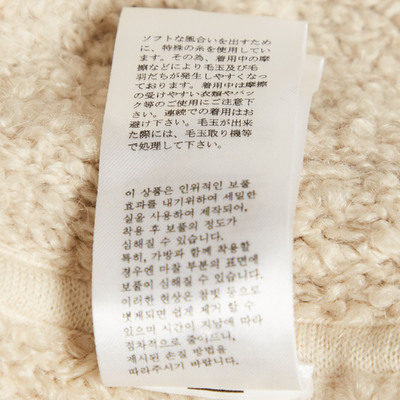 ソフトな風合いを出すため
に、特殊の糸を使用してい
ます。その為、着用中の摩
擦などにより毛玉及び毛
羽だちが発生しやすくなっ
ております。着用中は摩擦
の受けやすい衣類やバッ
ク等のご使用にご注意下
さい。連続での着用はお
避け下さい。毛玉が出来
た際には、毛玉取り機等
で処理して下さい。
이 상품은 인위적인 보풀
효과를 내기위하여 세밀한
실을 사용하여 제작되어,
착용 후 보풀의 정도가
심해질 수 있습니다.
특히, 가방과 함께 착용할
경우엔 마찰 부분의 표면에
보풀이 심해질 수 있습니다.
이러한 현상은 참빗 등으로
빗게되면 쉽게 제거 할 수
있으며 시간이 지남에 따라
점차적으로 줄어드니,
제시된 손질 방법을
따라주시기 바랍니다.